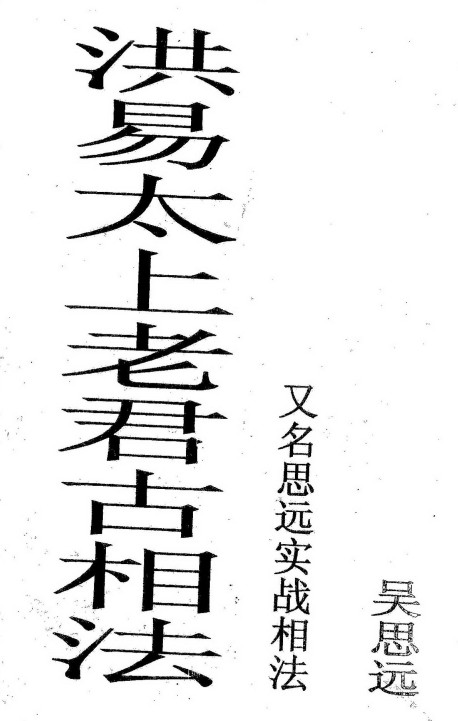 洪易太上老君古相法
又名思远实战相法
吴思远